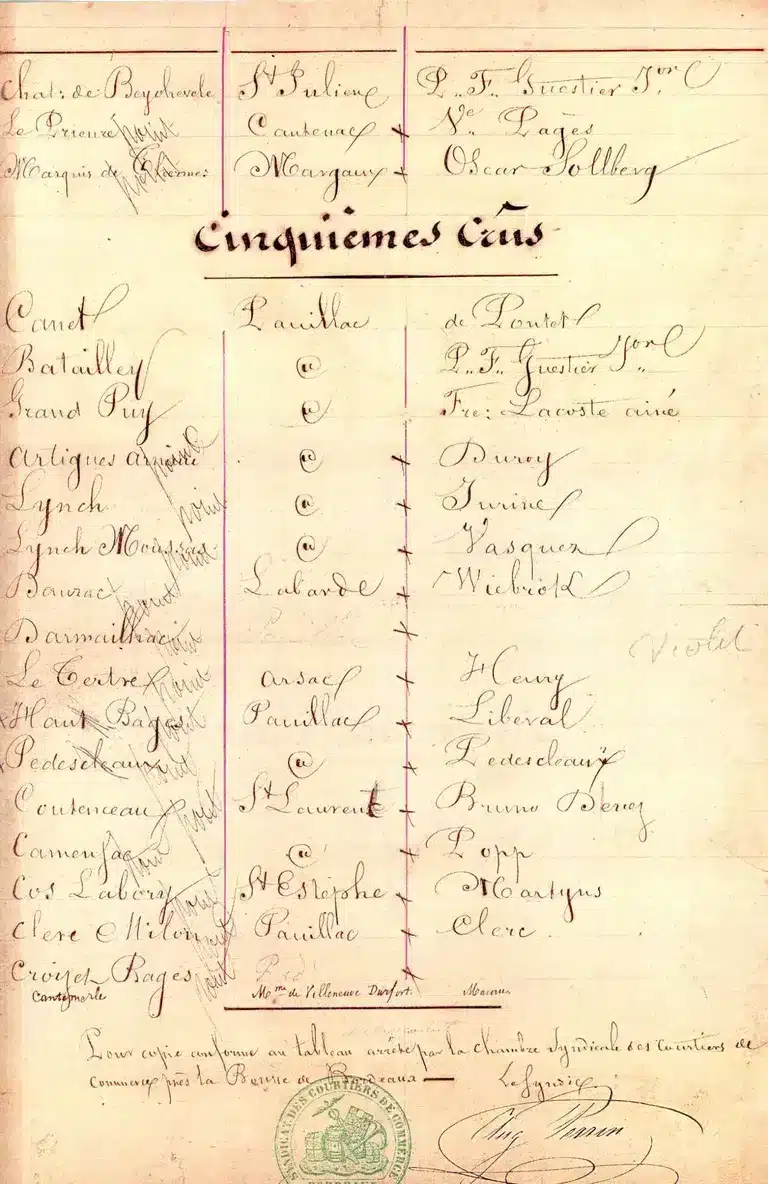 Chat: de Beychevele St Julien P.. F.. Guestier Jor
Le Prieuré point Cantenac x Ve Pagès
Marquis de Thermes point Margaux x Oscar Sollberg
Cinquièmes Crûs
Canet Pauillac de Pontet
Batailley @ P.. F.. Guestier Jor..
Grand Puy @ Fre: Lacoste ainé
Artigues Arnaud point @ x Duroy
Lynch point @ x Jurine
Lynch Moussas point @ x Vasquez
Dauzac point Labarde x Wiebrok
Darmailhac point x
Violet
Le Tertre point Arsac x Henry
x Haut Bages point Pauillac x Liberal
x Pedescleaux point @ x Pedescleaux
Coutenceau point St Laurent x Bruno Devez
Camensac point @ x Popp
Cos Labory point St Estèphe x Martyns
Clerc Milon point Pauillac x Clerc.
Croizet Bages point x
Cantemerle Mme de Villeneuve Durfort. Macau
Pour copie conforme au tableau arrêté par la Chambre Syndicale des Courtiers de
Commerce près la Bourse de Bordeaux — Le Syndic
SYNDICAT DES COURTIERS DE COMMERCE
BORDEAUX
Perrin